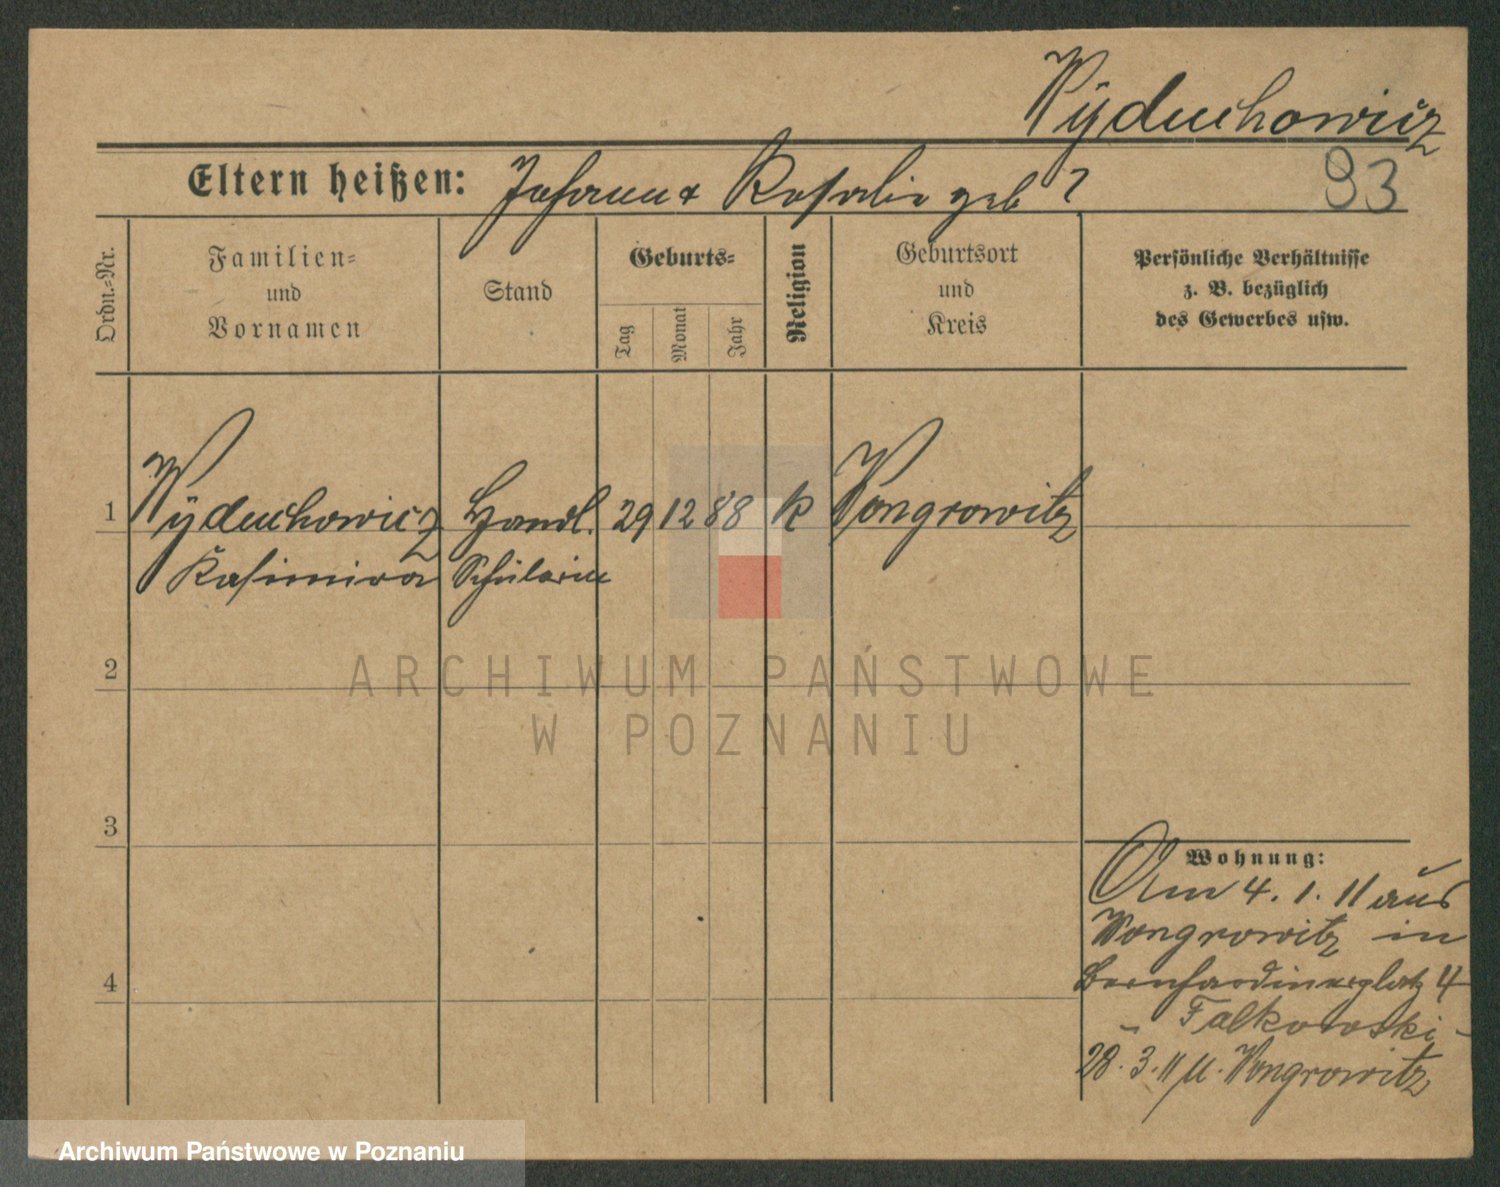 Wÿduchowicz
Eltern heißen: Johann & Rosalie geb ?
93
Ordn.-Nr.
Familien-
und
Vornamen
Stand
Geburts-
Tag
Monat
Jahr
Religion
Geburtsort
und
Kreis
Persönliche Verhältnisse
z. B. bezüglich
des Gewerbes usw.
1 Wÿduchowicz Handl. 29 12 88 k Wongrowitz
Kasimira Schülerin
2
3
4
Wohnung:
Am 4. 1. 11 aus
Wongrowitz in
Bernhardinerplatz 4
- Falkowski -
28. 3. 11 n. Wongrowitz
ARCHIWUM PAŃSTWOWE
W POZNANIU
Archiwum Państwowe w Poznaniu